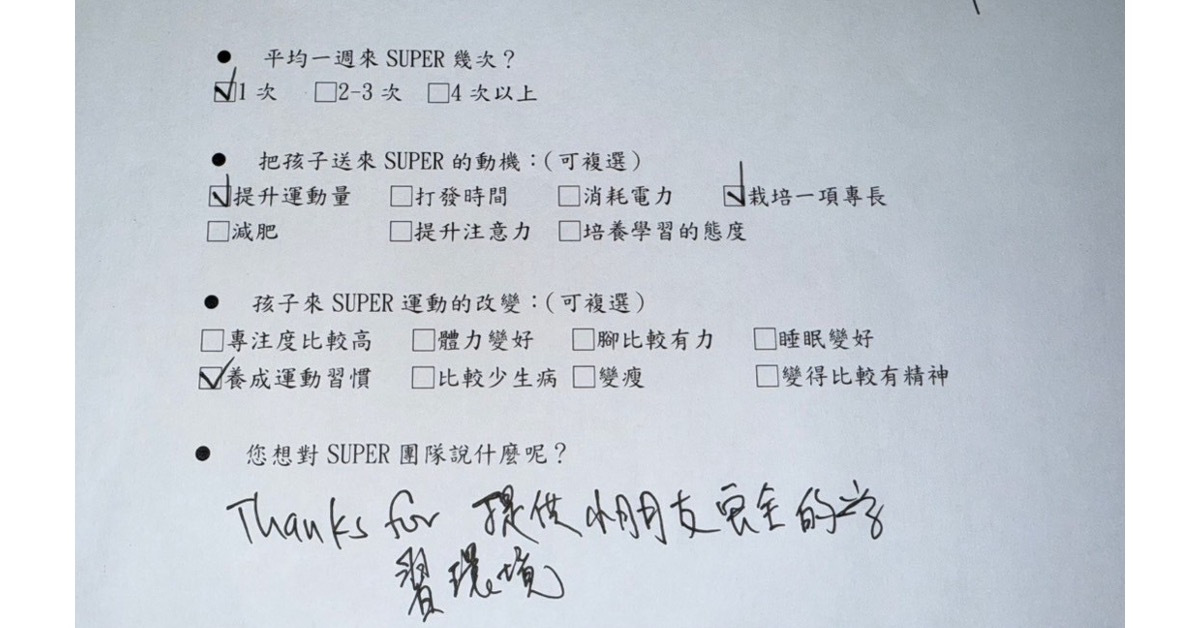 ● 平均一週來 SUPER 幾次？
☑1 次 □2-3 次 □4 次以上
● 把孩子送來 SUPER 的動機：(可複選)
☑提升運動量 □打發時間 □消耗電力 ☑栽培一項專長
□減肥 □提升注意力 □培養學習的態度
● 孩子來 SUPER 運動的改變：(可複選)
□專注度比較高 □體力變好 □腳比較有力 □睡眠變好
☑養成運動習慣 □比較少生病 □變瘦 □變得比較有精神
● 您想對 SUPER 團隊說什麼呢？
Thanks for 提供小朋友安全的学
習環境